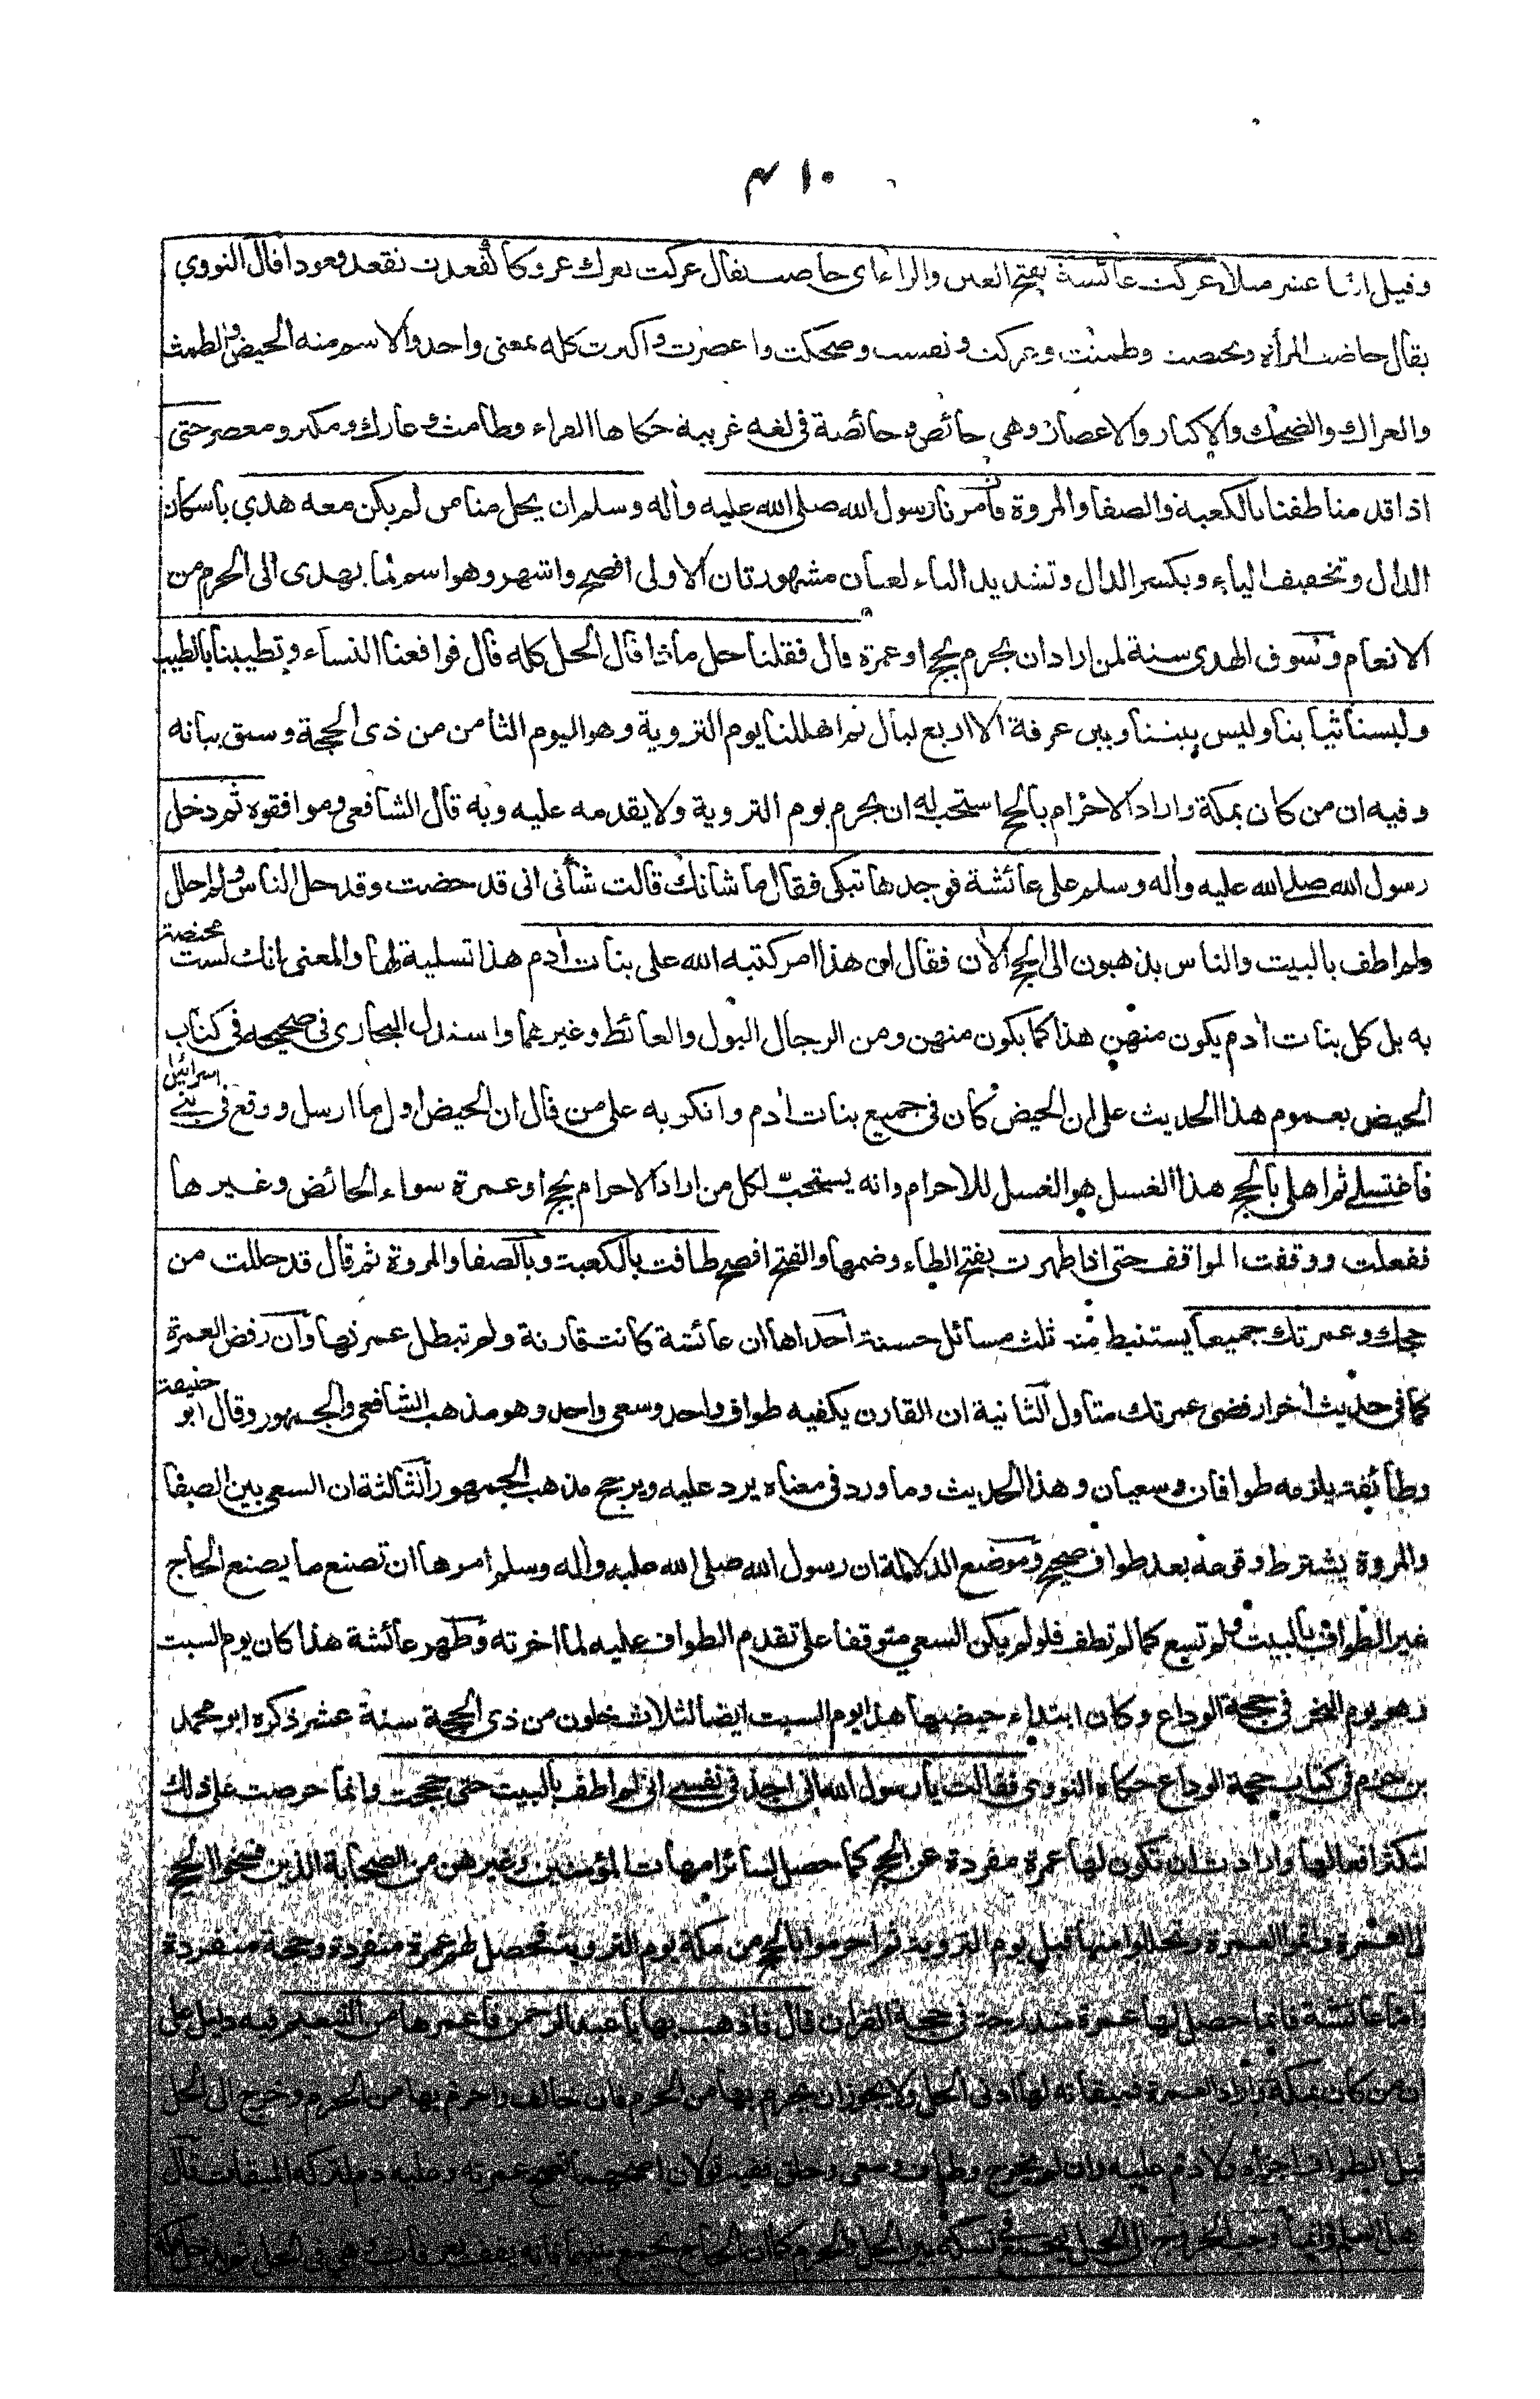 ٣١٠
وقيل اثنا عشر ميلا عركت عائشة بفتح العين والراء اى حاضت يقال عركت تعرك عروكا كقعدت تقعد قعودا قال النووي
يقال حاضت المرأة وتحيضت وطمثت وعركت ونفست وضحكت واعصرت واكبرت كله بمعنى واحد والاسم منه الحيض والطمث
والعراك والضحك والاكبار والاعصار وهى حائض وحائضة فى لغه غريبة حكاها الفراء وطامث وعارك ومكبر ومعصر حتى
اذا قدمنا طفنا بالكعبة والصفا والمروة فأمرنا رسول الله صلى الله عليه وأله وسلم ان يحل منا من لم يكن معه هدي باسكان
الدال وتخفيف الياء وبكسر الدال وتشديد الياء لغتان مشهورتان الاولى افصح واشهر وهو اسم لما يهدى الى الحرم من
الانعام وسوق الهدى سنة لمن اراد ان يحرم بحج او عمرة قال فقلنا حل ماذا قال الحل كله قال فواقعنا النساء وتطيبنا بالطيب
ولبسنا ثيابنا وليس بيننا وبين عرفة الا اربع ليال ثم اهللنا يوم التروية وهو اليوم الثامن من ذى الحجة وسبق بيانه
وفيه ان من كان بمكة واراد الاحرام بالحج استحب له ان يحرم يوم التروية ولا يقدمه عليه وبه قال الشافعى وموافقوه ثم دخل
رسول الله صلى الله عليه وأله وسلم على عائشة فوجدها تبكى فقال ما شانك قالت شأنى انى قد حضت وقد حل الناس ولم احلل
ولم اطف بالبيت والناس يذهبون الى الحج الأن فقال ان هذا امر كتبه الله على بنات أدم هذا تسلية لها والمعنى انك لست مختصة
به بل كل بنات أدم يكون منهن هذا كما يكون منهن ومن الرجال البول والغائط وغيرهما واستدل البخارى فى صحيحه فى كتاب
الحيض بعموم هذا الحديث على ان الحيض كان فى جميع بنات أدم وانكر به على من قال ان الحيض اول ما ارسل ووقع فى بنى اسرائيل
فاغتسلى ثم اهلى بالحج هذا الغسل هو الغسل للاحرام وانه يستحب لكل من اراد الاحرام بحج او عمرة سواء الحائض وغيرها
ففعلت ووقفت المواقف حتى اذا طهرت بفتح الطاء وضمها والفتح افصح طافت بالكعبة وبالصفا والمروة ثم قال قد حللت من
حجك وعمرتك جميعا يستنبط منه ثلث مسائل حسنة احداها ان عائشة كانت قارنة ولم تبطل عمرتها وان رفض العمرة
كما فى حديث أخر ارفضى عمرتك متاول الثانية ان القارن يكفيه طواف واحد وسعى واحد وهو مذهب الشافعى والجمهور وقال ابو حنيفة
وطائفة يلزمه طوافان وسعيان وهذا الحديث وما ورد فى معناه يرد عليه ويرجح مذهب الجمهور الثالثة ان السعى بين الصفا
والمروة يشترط وقوعه بعد طواف صحيح وموضع الدلالة ان رسول الله صلى الله عليه وأله وسلم امرها ان تصنع ما يصنع الحاج
غير الطواف بالبيت ولم تسع كما لم تطف فلو لم يكن السعي متوقفا على تقدم الطواف عليه لما اخرته وطهر عائشة هذا كان يوم السبت
وهو يوم النحر فى حجة الوداع وكان ابتداء حيضها هذا يوم السبت ايضا لثلاث خلون من ذى الحجة سنة عشر ذكره ابو محمد
بن حزم فى كتاب حجة الوداع حكاه النووى فقالت يا رسول الله انى اجد فى نفسى انى لم اطف بالبيت حتى حججت وانما حرصت على ذلك
لتكثر افعالها وارادت ان تكون لها عمرة مفردة عن الحج كما حصل لسائر امهات المؤمنين وغيرهن من الصحابة الذين فسخوا الحج
الى العمرة واتموا العمرة وتحللوا منها قبل يوم التروية ثم احرموا بالحج من مكة يوم التروية فحصل لهم عمرة منفردة وحجة منفردة
واما عائشة فانما حصل لها عمرة مندرجة فى حجة القران قال فاذهب بها يا عبد الرحمن فاعمرها من التنعيم فيه دليل على
ان من كان بمكة واراد العمرة فميقاته لها ادنى الحل ولا يجوز ان يحرم بها من الحرم فان خالف واحرم بها من الحرم وخرج الى الحل
قبل الطواف اجزأه ولا دم عليه وان لم يخرج وطاف وسعى وحلق ففيه قولان اصحهما تصح عمرته وعليه دم لتركه الميقات قال
العلماء وانما وجب الخروج الى الحل ليجمع فى نسكه بين الحل والحرم كما ان الحاج يجمع بينهما فانه يقف بعرفات وهى فى الحل ثم يدخل مكة